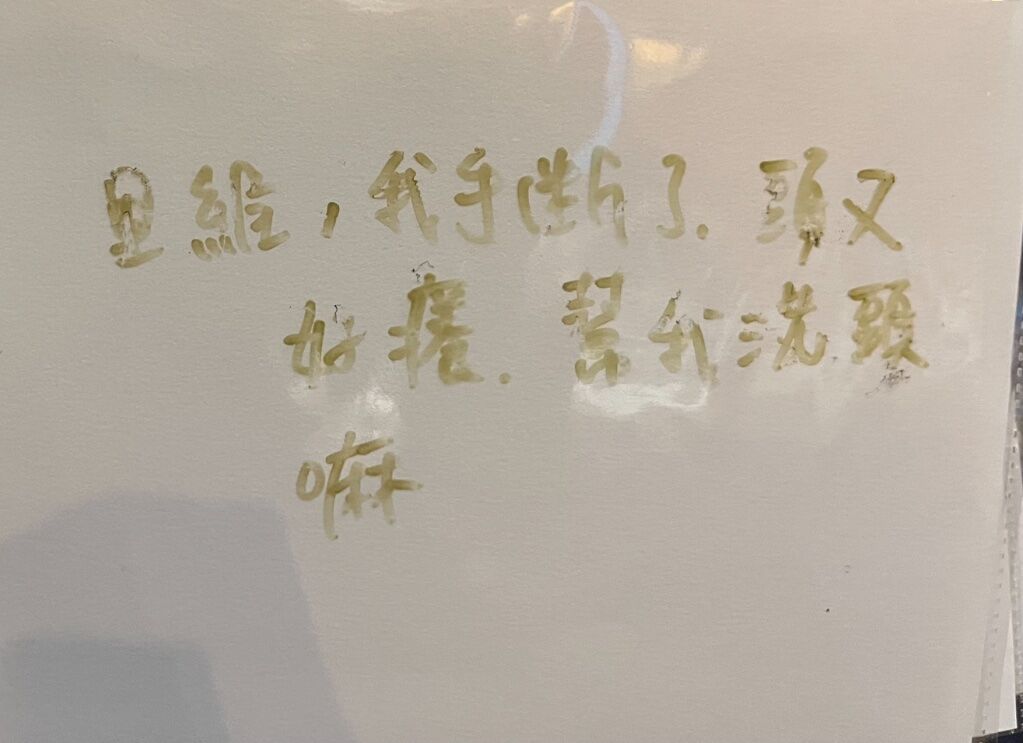 旦維,我手断了.頭又
好癢.幫我洗頭
嘛